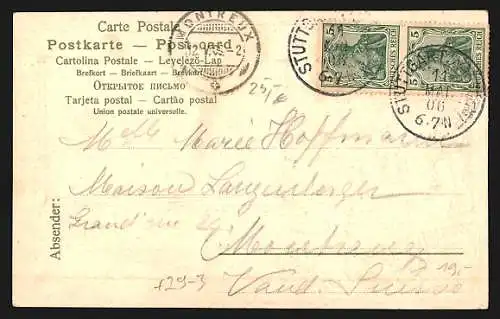 Carte Postale
Postkarte — Post-card
Cartolina Postale — Levelező-Lap
Brefkort — Briefkaart — Brevkort
Открытое письмо
Tarjeta postal — Cartão postal
Union postale universelle.
MONTREUX
STUTTG
STUTTGART
11
MAI
06
6-7 N
5 5
DEUTSCHES REICH
Melle Marie Hoffmann
Maison Langenberger
Grand' rue 29
Montreux
Vaud. Suisse
Absender:
19.-